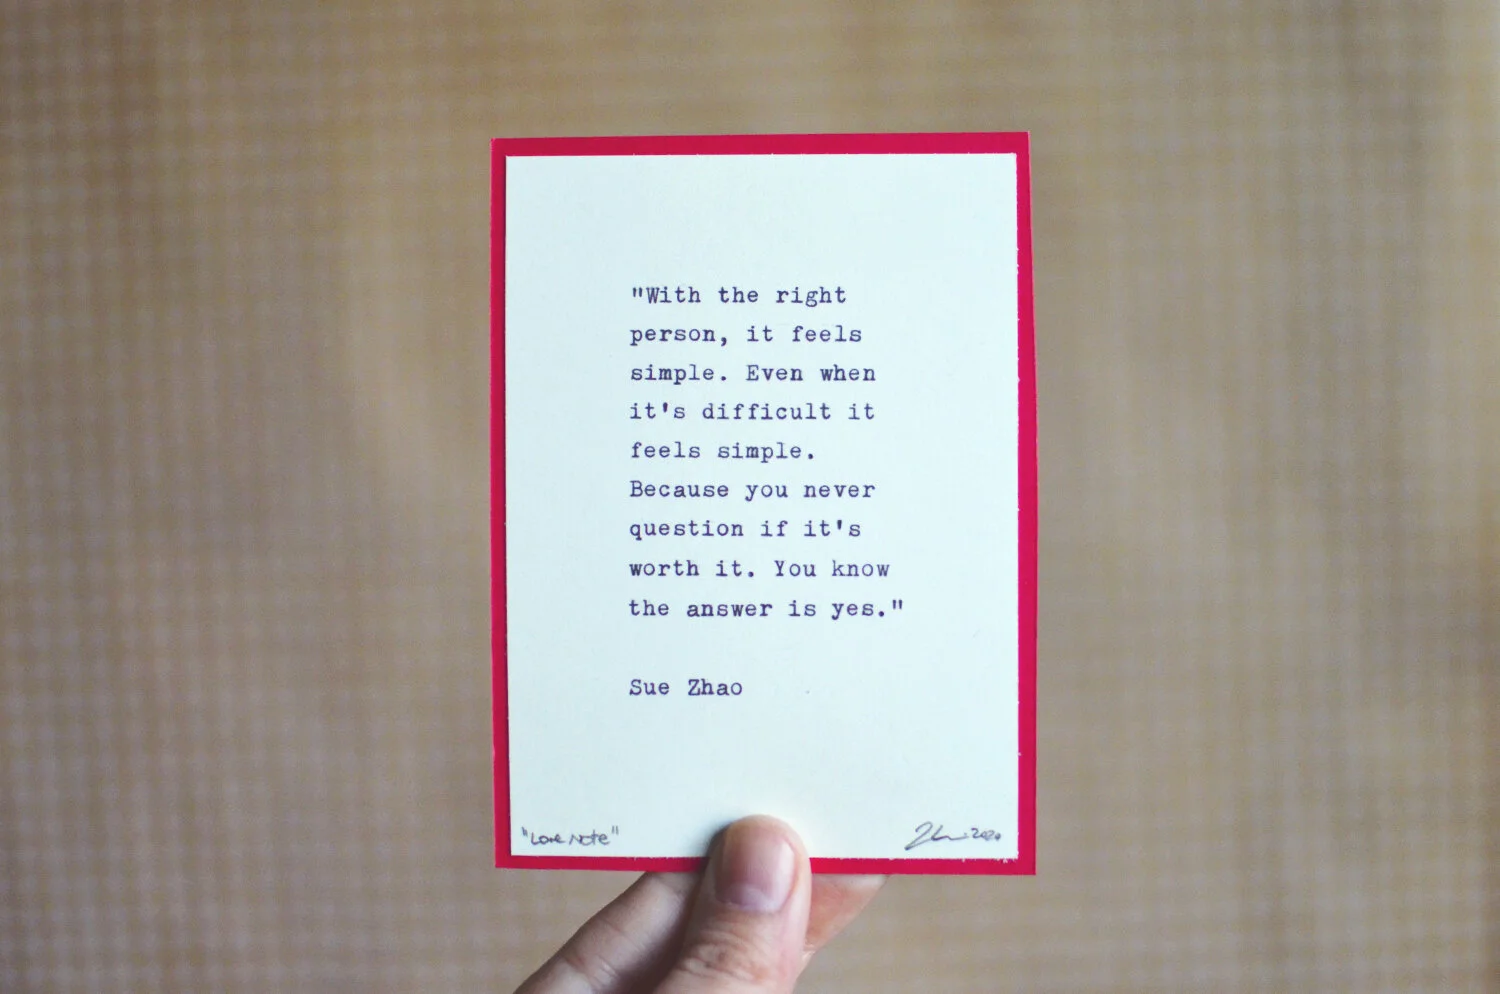 "With the right
person, it feels
simple. Even when
it's difficult it
feels simple.
Because you never
question if it's
worth it. You know
the answer is yes."
Sue Zhao
"Love Note"
2020